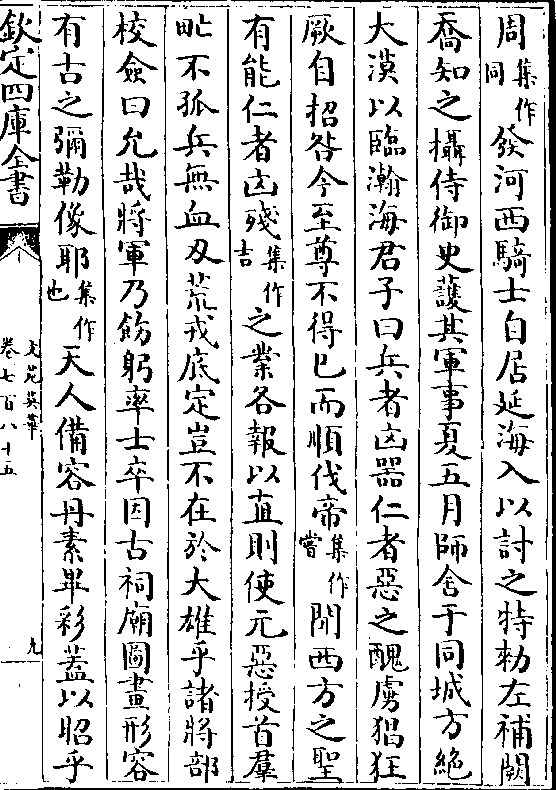 周集作同發河西騎士自居延海入以討之特勅左補闕
喬知之攝侍御史護其軍事夏五月師舍于同城方絶
大漠以臨瀚海君子曰兵者凶器仁者惡之醜虜猖狂
厥自招咎今至尊不得已而順伐帝集作嘗聞西方之聖
有能仁者凶殘集作吉之業各報以直則使元惡授首羣
甿不孤兵無血刃荒戎底定豈不在於大雄乎諸將部
校僉曰允哉將軍乃飭躬率士卒因古祠廟圖畫形容
有古之彌勒像耶集作也天人備容丹素畢彩蓋以昭乎
欽定四庫全書
文苑英華
卷七百八十五
九